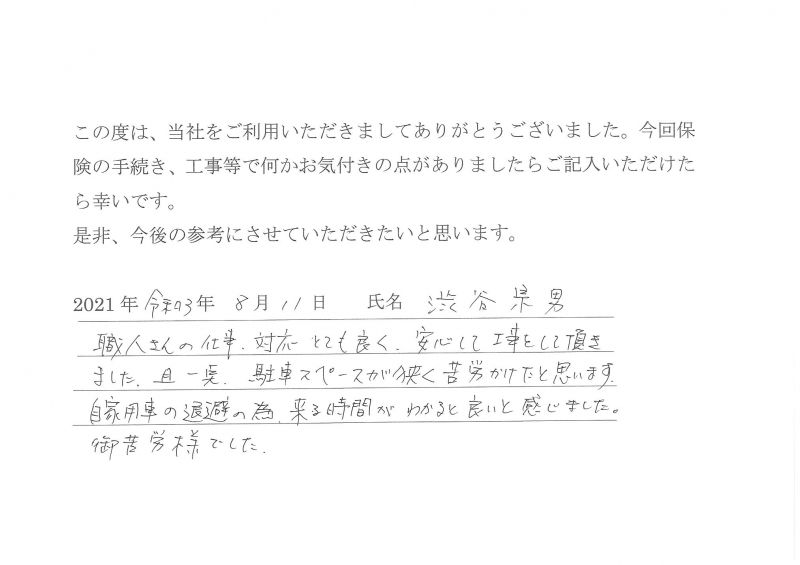 この度は、当社をご利用いただきましてありがとうございました。今回保
険の手続き、工事等で何かお気付きの点がありましたらご記入いただけた
ら幸いです。
是非、今後の参考にさせていただきたいと思います。
2021年 令和3年 8月11日 氏名 渋谷 男
職人さんの仕事、対応とても良く、安心して工事をして頂き
ました。且 、駐車スペースが狭く苦労かけたと思います。
自家用車の退避の為、来る時間がわかると良いと感じました。
御苦労様でした。